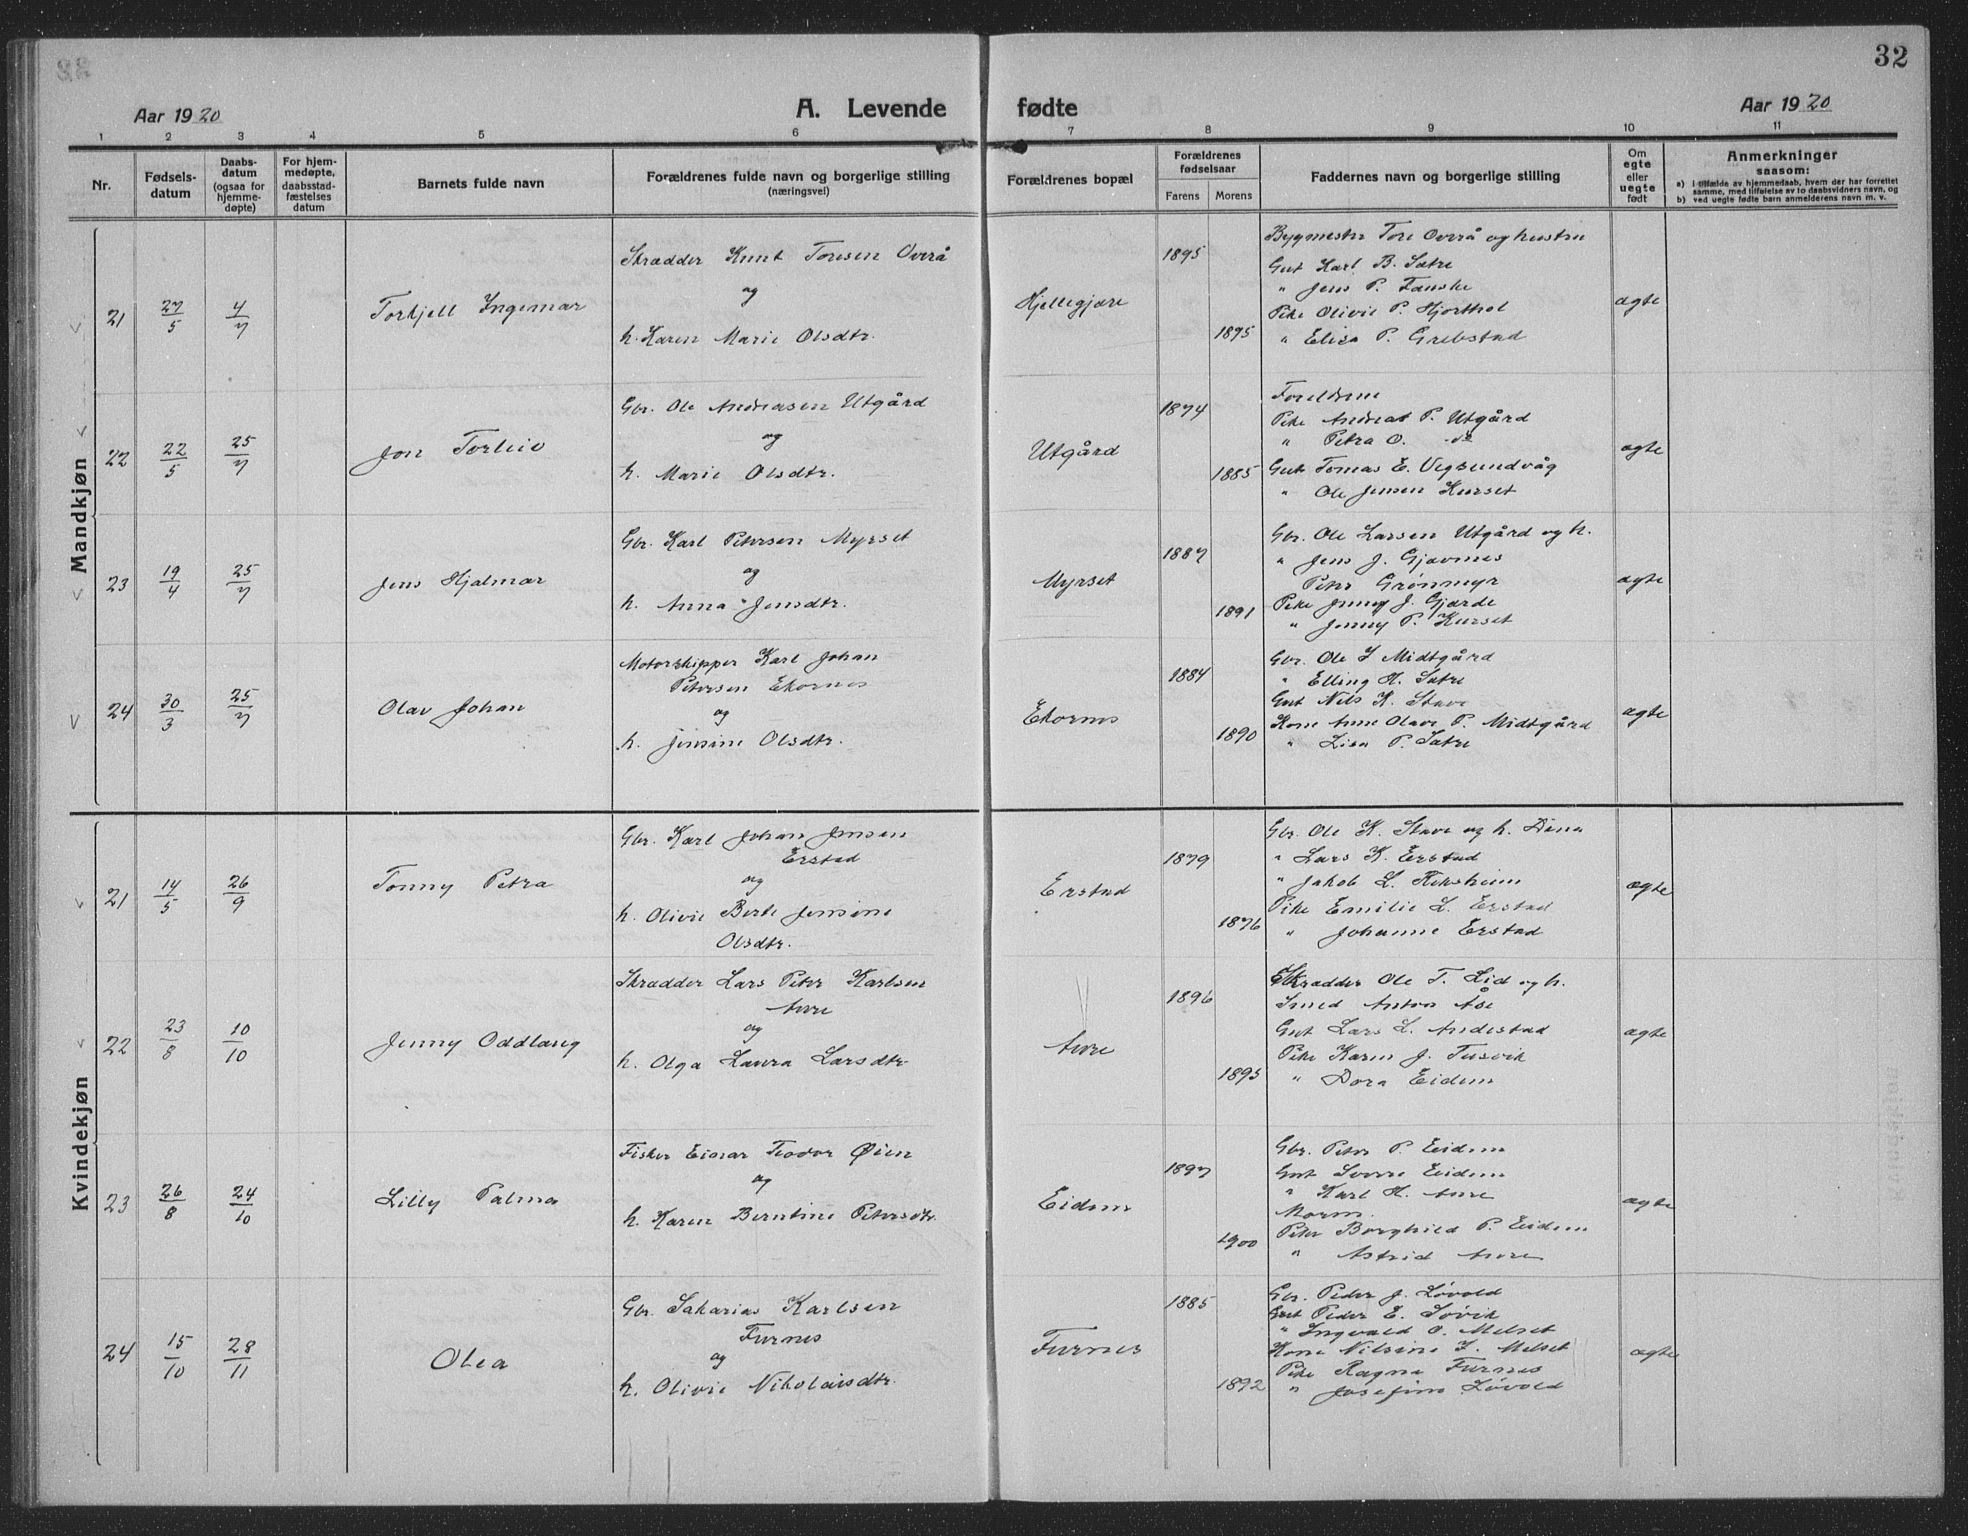 32
Aar 1920
A. Levende fødte
Aar 1920
1 2 3 4 5 6 7 8 9 10 11
Nr.
Fødsels-
datum
Daabs-
datum
(ogsaa for
hjemme-
døpte)
For hjem-
medøpte,
daabsstad-
fæstelses
datum
Barnets fulde navn
Forældrenes fulde navn og borgerlige stilling
(næringsvei)
Forældrenes bopæl
Forældrenes
fødselsaar
Farens Morens
Faddernes navn og borgerlige stilling
Om
egte
eller
uegte
født
Anmerkninger
saasom:
a) i tilfælde av hjemmedaab, hvem der har forrettet
samme, med tilføielse av to daabsvidners navn, og
b) ved uegte fødte barn anmelderens navn m. v.
Mandkjøn
21 27/5 4/7 Torkjell Ingemar
Skrædder Knut Toresen Overå
og
h. Karen Marie Olsdtr.
Hjellegjære
1895
1895
Bygmester Tore Overå og hustru
Gut Karl B. Sætre
" Jens P. Fauske
Pike Olivie P. Hjorthol
" Elisa P. Grebstad
ægte
22 22/5 25/7 Jon Torleiv
Gbr. Ole Andreasen Utgård
og
h. Marie Olsdtr.
Utgård
1874
1885
Foreldrene
Pike Andrea P. Utgård
" Petra O. do
Gut Tomas E. Vegsundvåg
" Ole Jensen Kurset
ægte
23 19/4 25/7 Jens Hjalmar
Gbr. Karl Petersen Myrset
og
h. Anna Jensdtr.
Myrset
1887
1891
Gbr. Ole Larsen Utgård og h.
" Jens J. Gjævnes
Peter Grønmyr
Pike Jenny J. Gjærde
" Jenny P. Kurset
ægte
24 30/3 25/7 Olav Johan
Motorskipper Karl Johan
Petersen Ekornes
og
h. Jensine Olsdtr.
Ekornes
1884
1890
Gbr. Ole I Midtgård
" Elling H. Sætre
Gut Nils K. Stave
Kone Anne Olave P. Midtgård
" Lisa P. Sætre
ægte
Kvindekjøn
21 14/5 26/9 Tonny Petra
Gbr. Karl Johan Jensen
Erstad
og
h. Olivie Berte Jensine
Olsdtr.
Erstad
1879
1876
Gbr. Ole K. Stave og h. Dina
" Lars K. Erstad
" Jakob L. Riksheim
Pike Emilie L. Erstad
" Johanne Erstad
ægte
22 23/8 10/10 Jenny Oddlaug
Skrædder Lars Peter Karlsen
Aure
og
h. Olga Laura Larsdtr.
Aure
1896
1895
Skrædder Ole T. Lid og h.
Smed Anton Åse
Gut Lars L. Andestad
Pike Karen J. Tusvik
" Dora Eidem
ægte
23 26/8 24/10 Lilly Palma
Fisker Einar Teodor Øien
og
h. Karen Berntine Petersdtr.
Eidem
1897
1900
Gbr. Peter P. Eidem
Gut Sverre Eidem
" Karl H. Aure
Moren
Pike Borghild P. Eidem
" Astrid Aure
ægte
24 15/10 28/11 Olea
Gbr. Sakarias Karlsen
Furnes
og
h. Olivie Nikolaisdtr.
Furnes
1885
1892
Gbr. Peder J. Løvold
Gut Peder E. Søvik
" Ingvald O. Melset
Kone Nilsine I. Melset
Pike Ragna Furnes
" Josefine Løvold
ægte